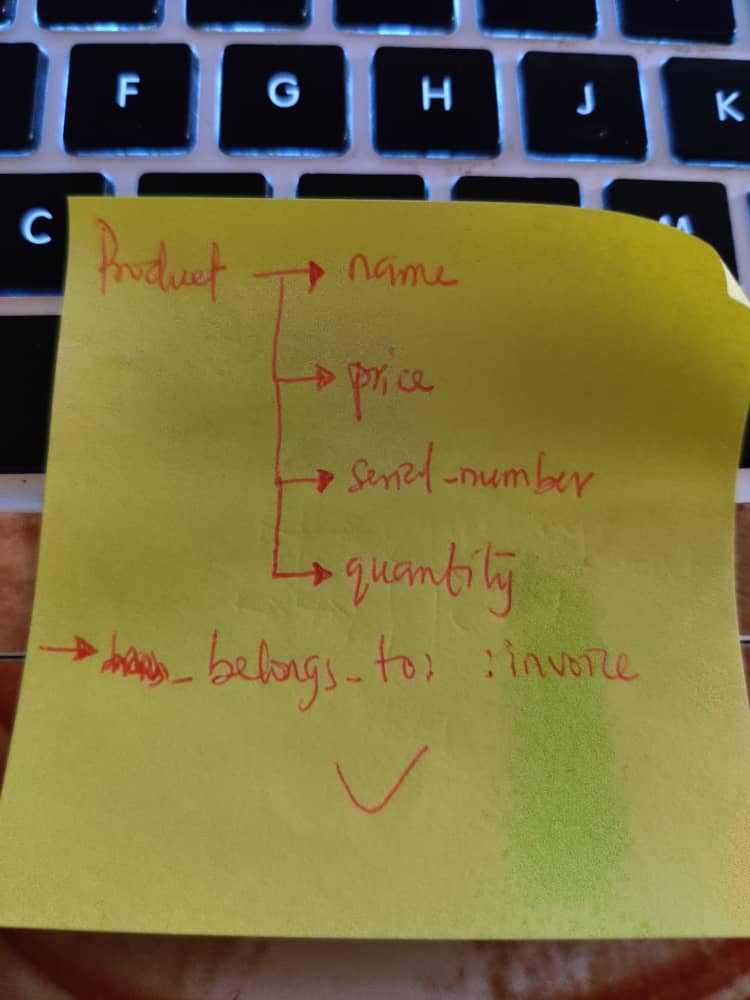 F G H J K
C M
Product → name
→ price
→ serial_number
→ quantity
→ _belongs_to: :invoice